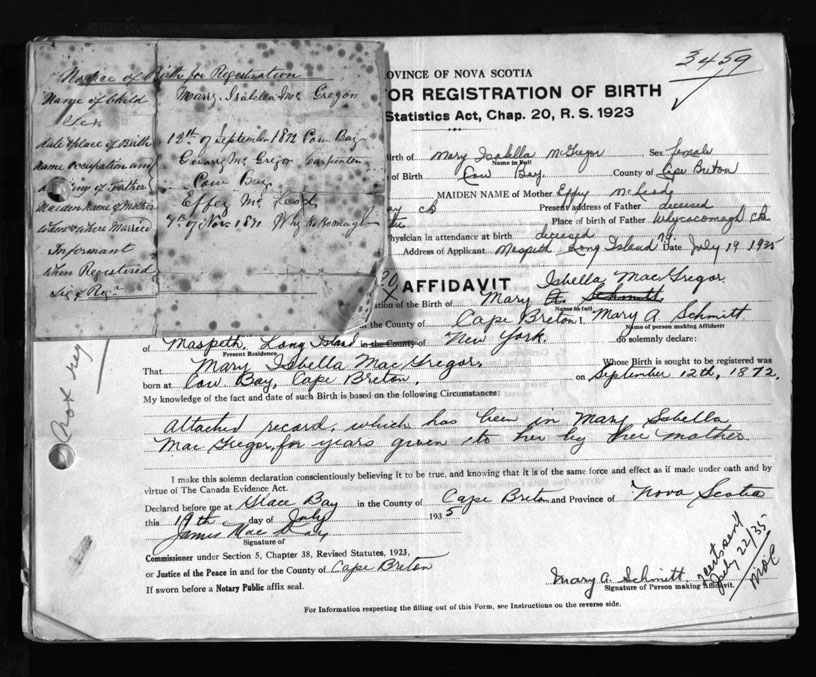 3459
Notice of Birth for Registration
Name of Child Mary Isabella Mc Gregor
Sex
date & place of Birth 12th of September 1872 Cow Bay
Name occupation and Mc Gregor Carpenter
of Father Cow Bay
Maiden Name of Mother Effey Mc Leod
When & where Married 7th of Nov 1871
Informant
When Registered
Sig of Regr
PROVINCE OF NOVA SCOTIA
FOR REGISTRATION OF BIRTH
Statistics Act, Chap. 20, R. S. 1923
Birth of Mary Isabella McGregor Sex female
Name in Full
of Birth Cow Bay. County of Cape Breton
MAIDEN NAME of Mother Effey McLeod
CB Present address of Father deceased
Place of birth of Father Whycocomagh CB
Physician in attendance at birth deceased
Address of Applicant Maspeth Long Island N.Y. Date July 19 1935
AFFIDAVIT Isbella MacGregor.
ation of the Birth of Mary A. Schmitt
Name in full
the County of Cape Breton I, Mary A. Schmitt
Name of person making Affidavit
of Maspeth, Long Island in the County of New York. do solemnly declare:
Present Residence
That Mary Isbella MacGregor. Whose Birth is sought to be registered was
born at Cow Bay, Cape Breton, on September 12th, 1872.
My knowledge of the fact and date of such Birth is based on the following Circumstances:
Attached record, which has been in Mary Isbella
MacGregor, for years given to her by her mother.
I make this solemn declaration conscientiously believing it to be true, and knowing that it is of the same force and effect as if made under oath and by
virtue of The Canada Evidence Act.
Declared before me at Glace Bay in the County of Cape Breton and Province of Nova Scotia
this 19th day of July 1935
James
Signature of
Commissioner under Section 5, Chapter 38, Revised Statutes, 1923,
or Justice of the Peace in and for the County of Cape Breton
If sworn before a Notary Public affix seal.
Mary A. Schmitt
Signature of Person making Affidavit.
For Information respecting the filling out of this Form, see Instructions on the reverse side.
Not reg
Cert sent
July 22/35